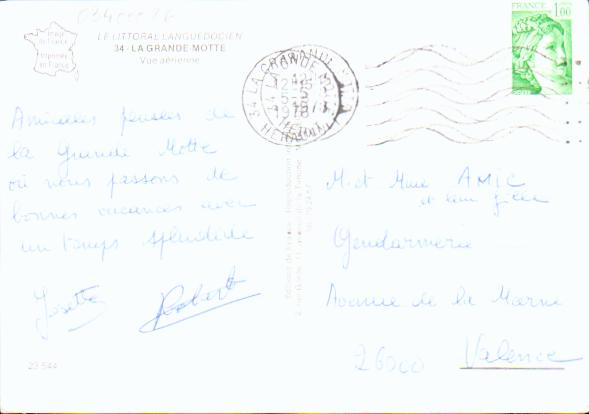 LE LITTORAL LANGUEDOCIEN
34 - LA GRANDE MOTTE
Vue aérienne
FRANCE
1,00
34 LA GRANDE MOTTE
HERAULT
Amicales pensées de
la Grande Motte
où nous passons de
bonnes vacances avec
un temps splendide
Josette
Robert
M. et Mme AMIC
et leur fille
Gendarmerie
Avenue de la Marne
26000 Valence
23 544